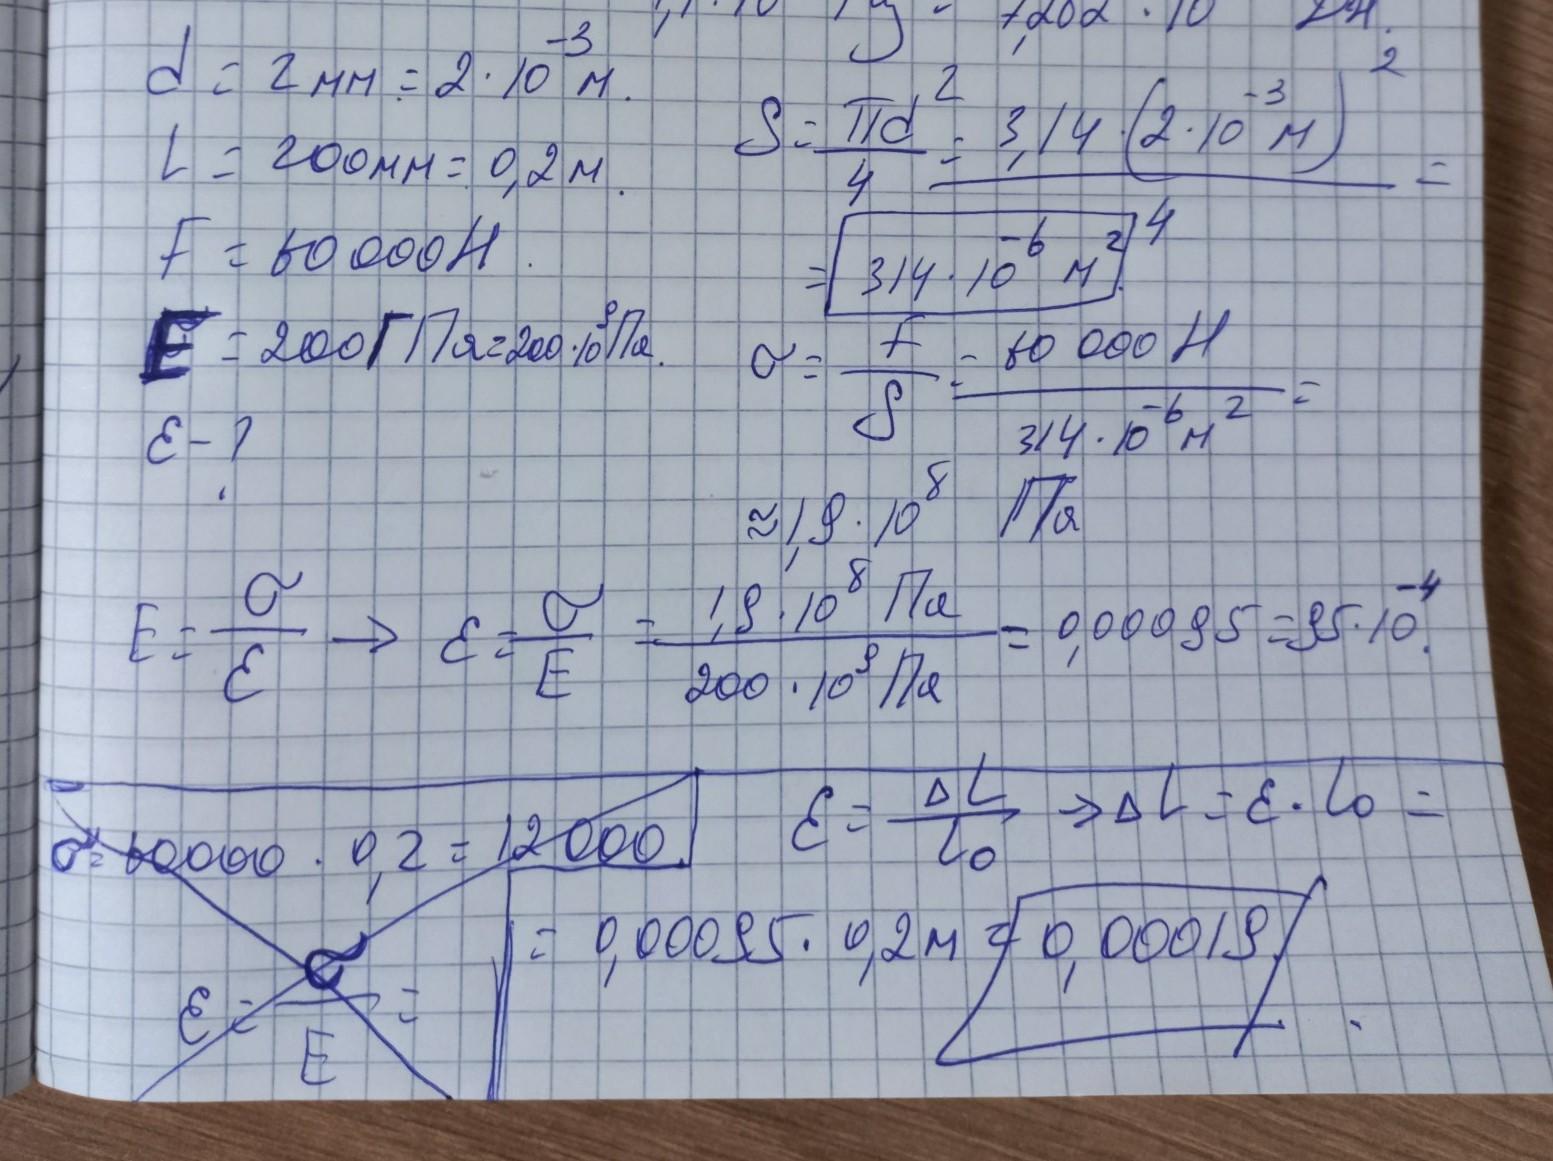 d = 2мм = 2·10⁻³ м.
L = 200мм = 0,2 м.
F = 60 000 Н.
E = 200 ГПа = 200·10⁹ Па.
ε - ?
S = πd²/4 = 3,14·(2·10⁻³ м)²/4 =
= 314·10⁻⁶ м².
σ = F/S = 60 000 Н / 314·10⁻⁶ м² =
≈ 1,9·10⁸ Па
E = σ/ε → ε = σ/E = 1,9·10⁸ Па / 200·10⁹ Па = 0,00095 = 95·10⁻⁴.
σ = 60000 · 0,2 = 12000.
ε = σ/E =
ε = ΔL/L₀ → ΔL = ε·L₀ =
= 0,00095 · 0,2 м = 0,00019